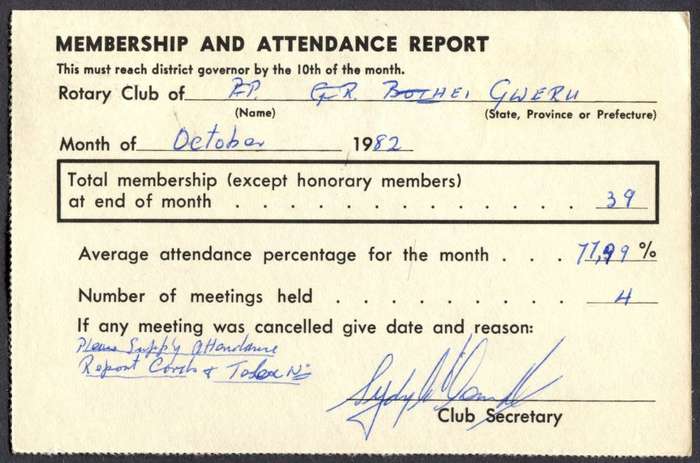 MEMBERSHIP AND ATTENDANCE REPORT
This must reach district governor by the 10th of the month.
Rotary Club of GWERU
(Name) (State, Province or Prefecture)
Month of October 1982
Total membership (except honorary members)
at end of month . . . . . . . . . . . . . . 39
Average attendance percentage for the month . . . 77,99 %
Number of meetings held . . . . . . . . . . 4
If any meeting was cancelled give date and reason:
Please Supply Attendance
Report Cards &
Club Secretary